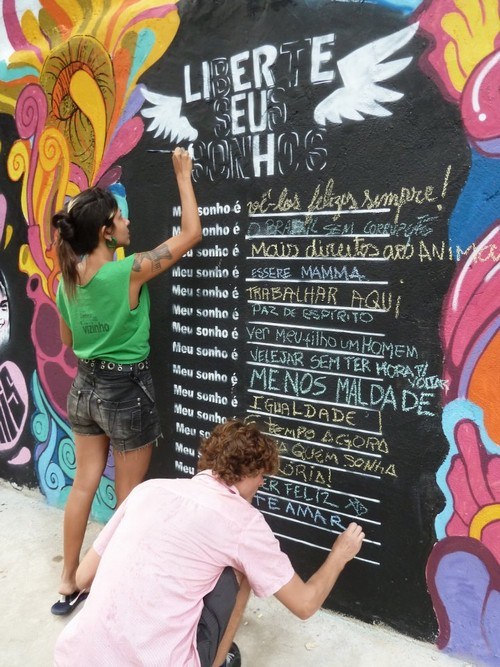 LIBERTE
SEUS
SONHOS
Meu sonho é vê-los felizes sempre!
Meu sonho é O BRASIL SEM CORRUPÇÃO
Meu sonho é Mais direitos aos ANIMA
Meu sonho é ESSERE MAMMA
Meu sonho é TRABALHAR AQUI
Meu sonho é PAZ DE ESPÍRITO
Meu sonho é Ver meu filho um HOMEM
Meu sonho é VELEJAR SEM TER HORA P/ VOLTAR
Meu sonho é MENOS MALDADE
Meu sonho é IGUALDADE
Meu sonho TEMPO AGORA
Meu sonho QUEM SONHA
Meu
Meu FELIZ
TE AMAR
vizinho